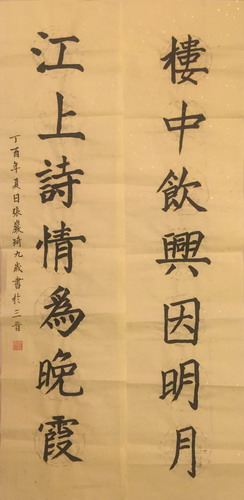 樓中飲興因明月
江上詩情為晚霞
丁酉年夏日張嚴琦九歲書於三晉